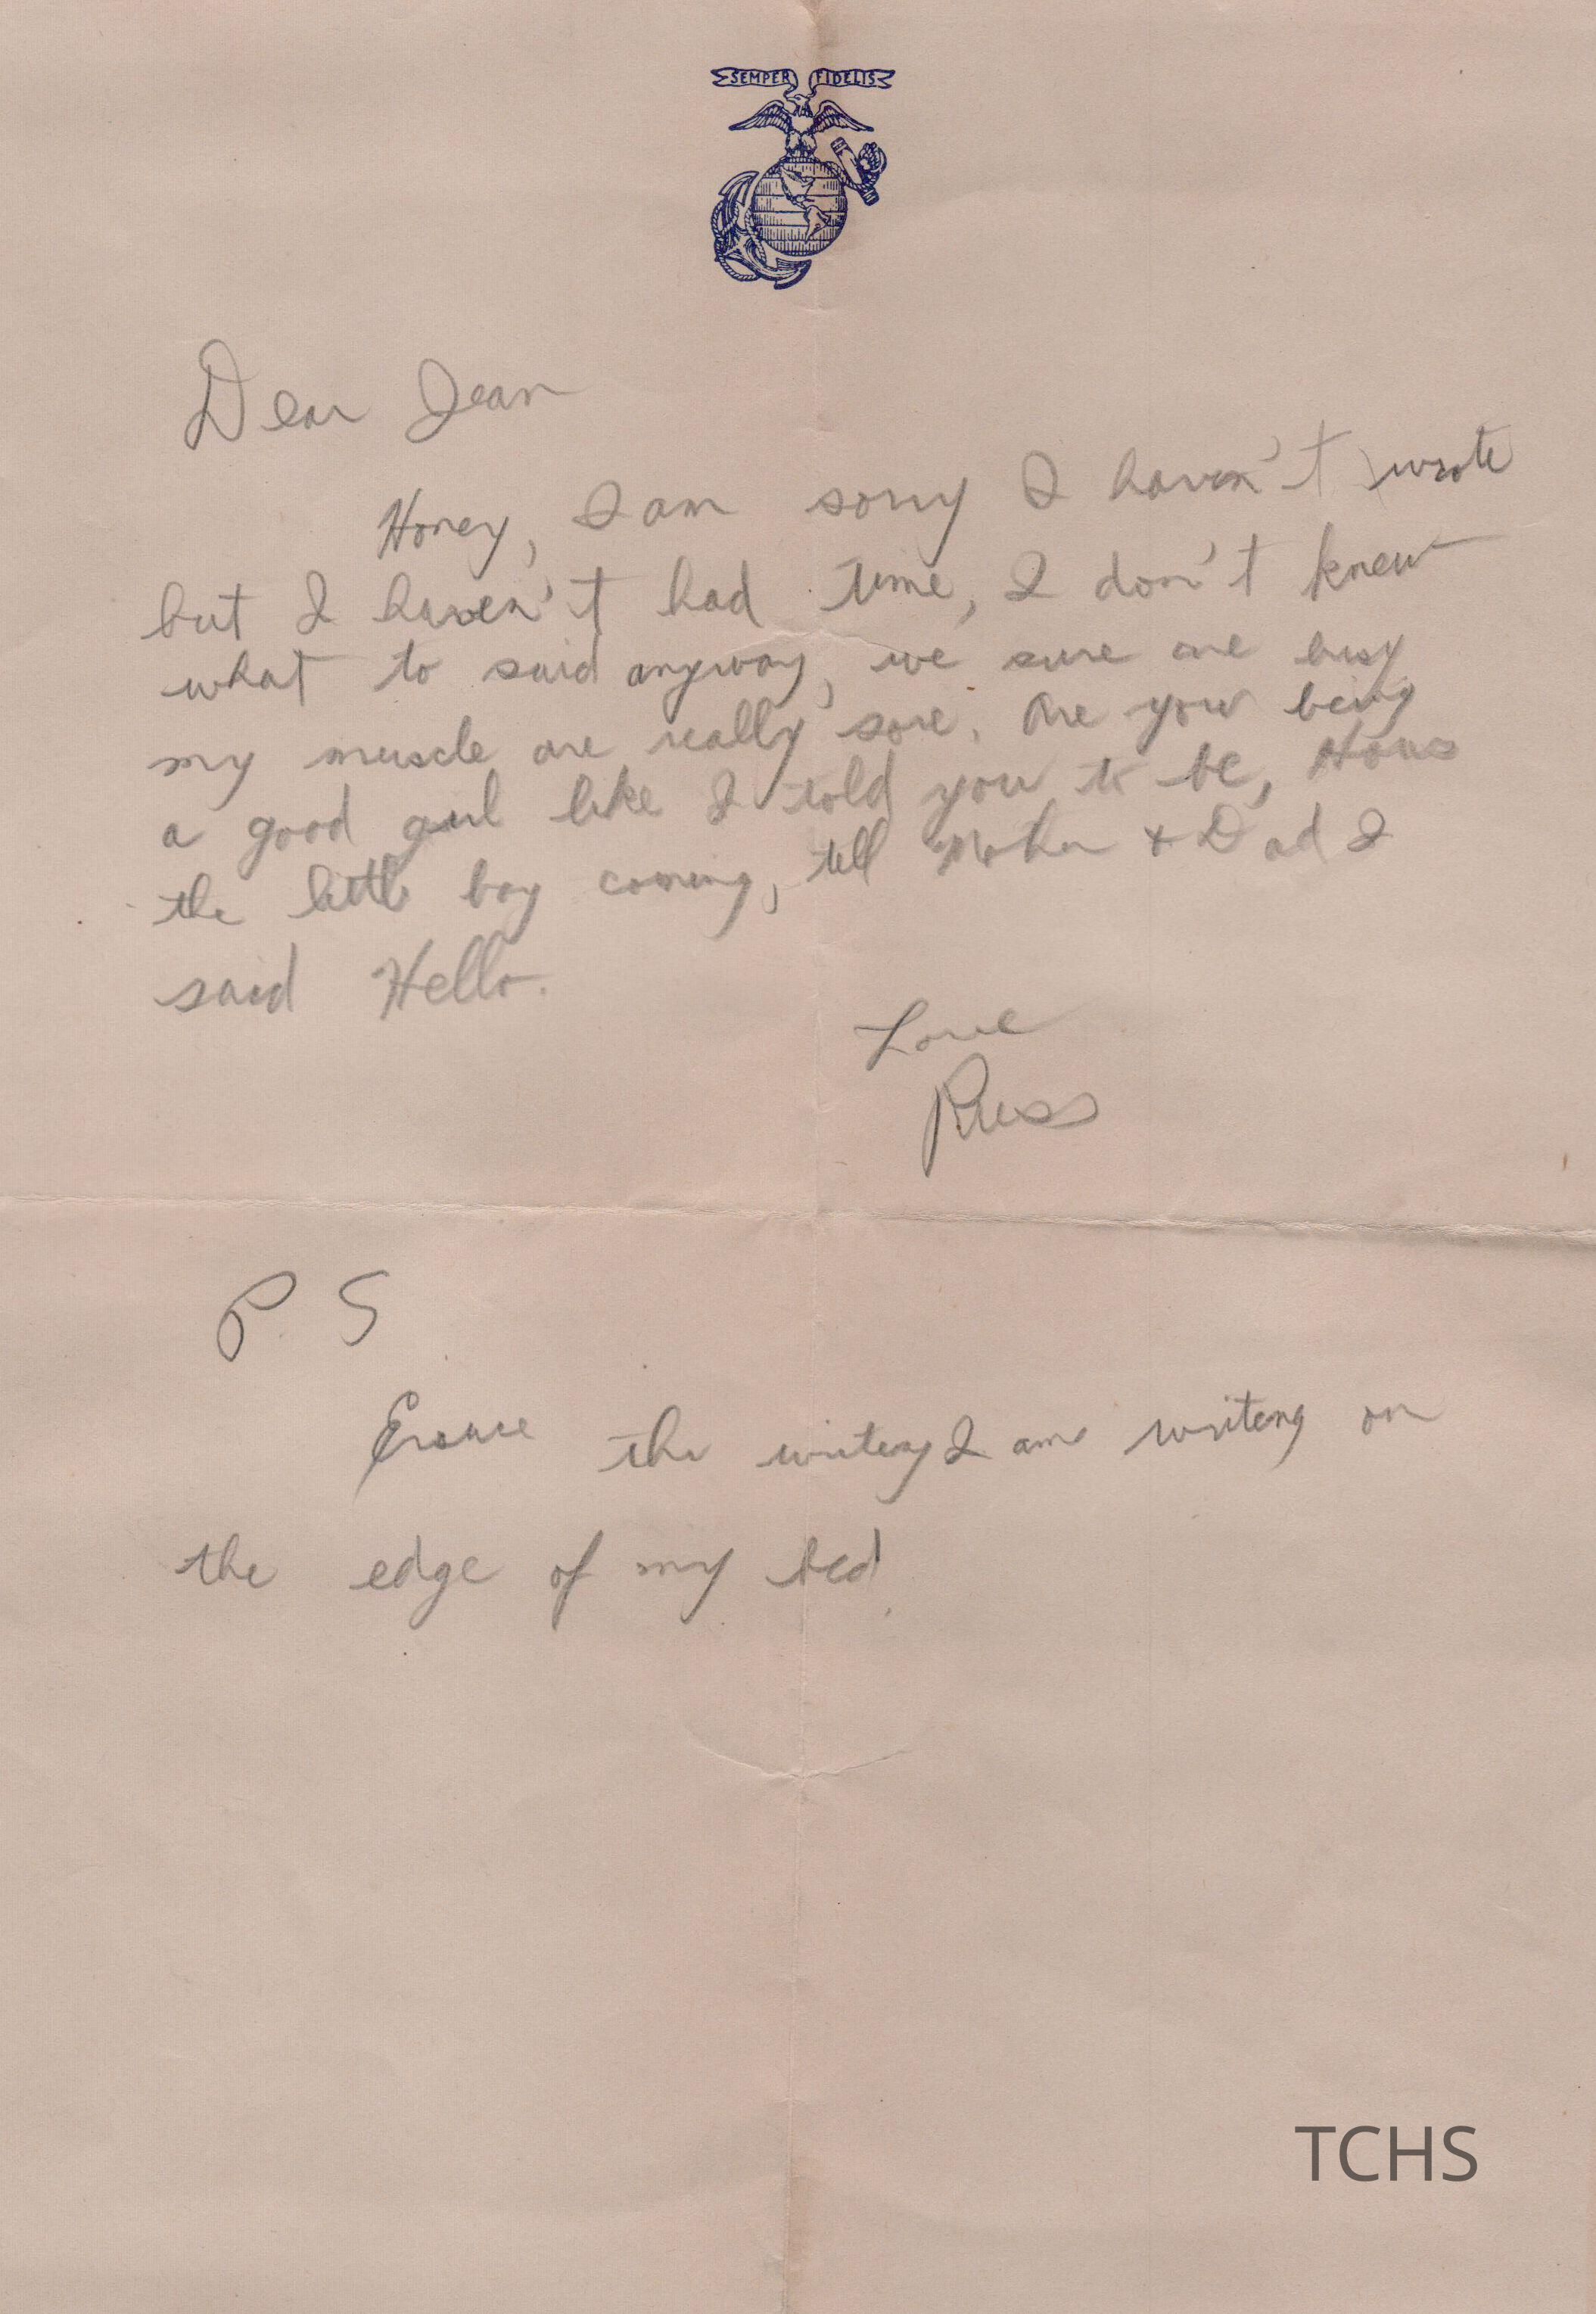 SEMPER FIDELIS
Dear Jean
Honey, I am sorry I haven't wrote
but I haven't had time, I don't knew
what to said anyway, we sure are busy
my muscle are really sore. Are you being
a good girl like I told you to be, Hows
the little boy coming, tell Mother + Dad I
said Hello.
Love
Russ
P. S
the writing I am writeng on
the edge of my bed.
TCHS